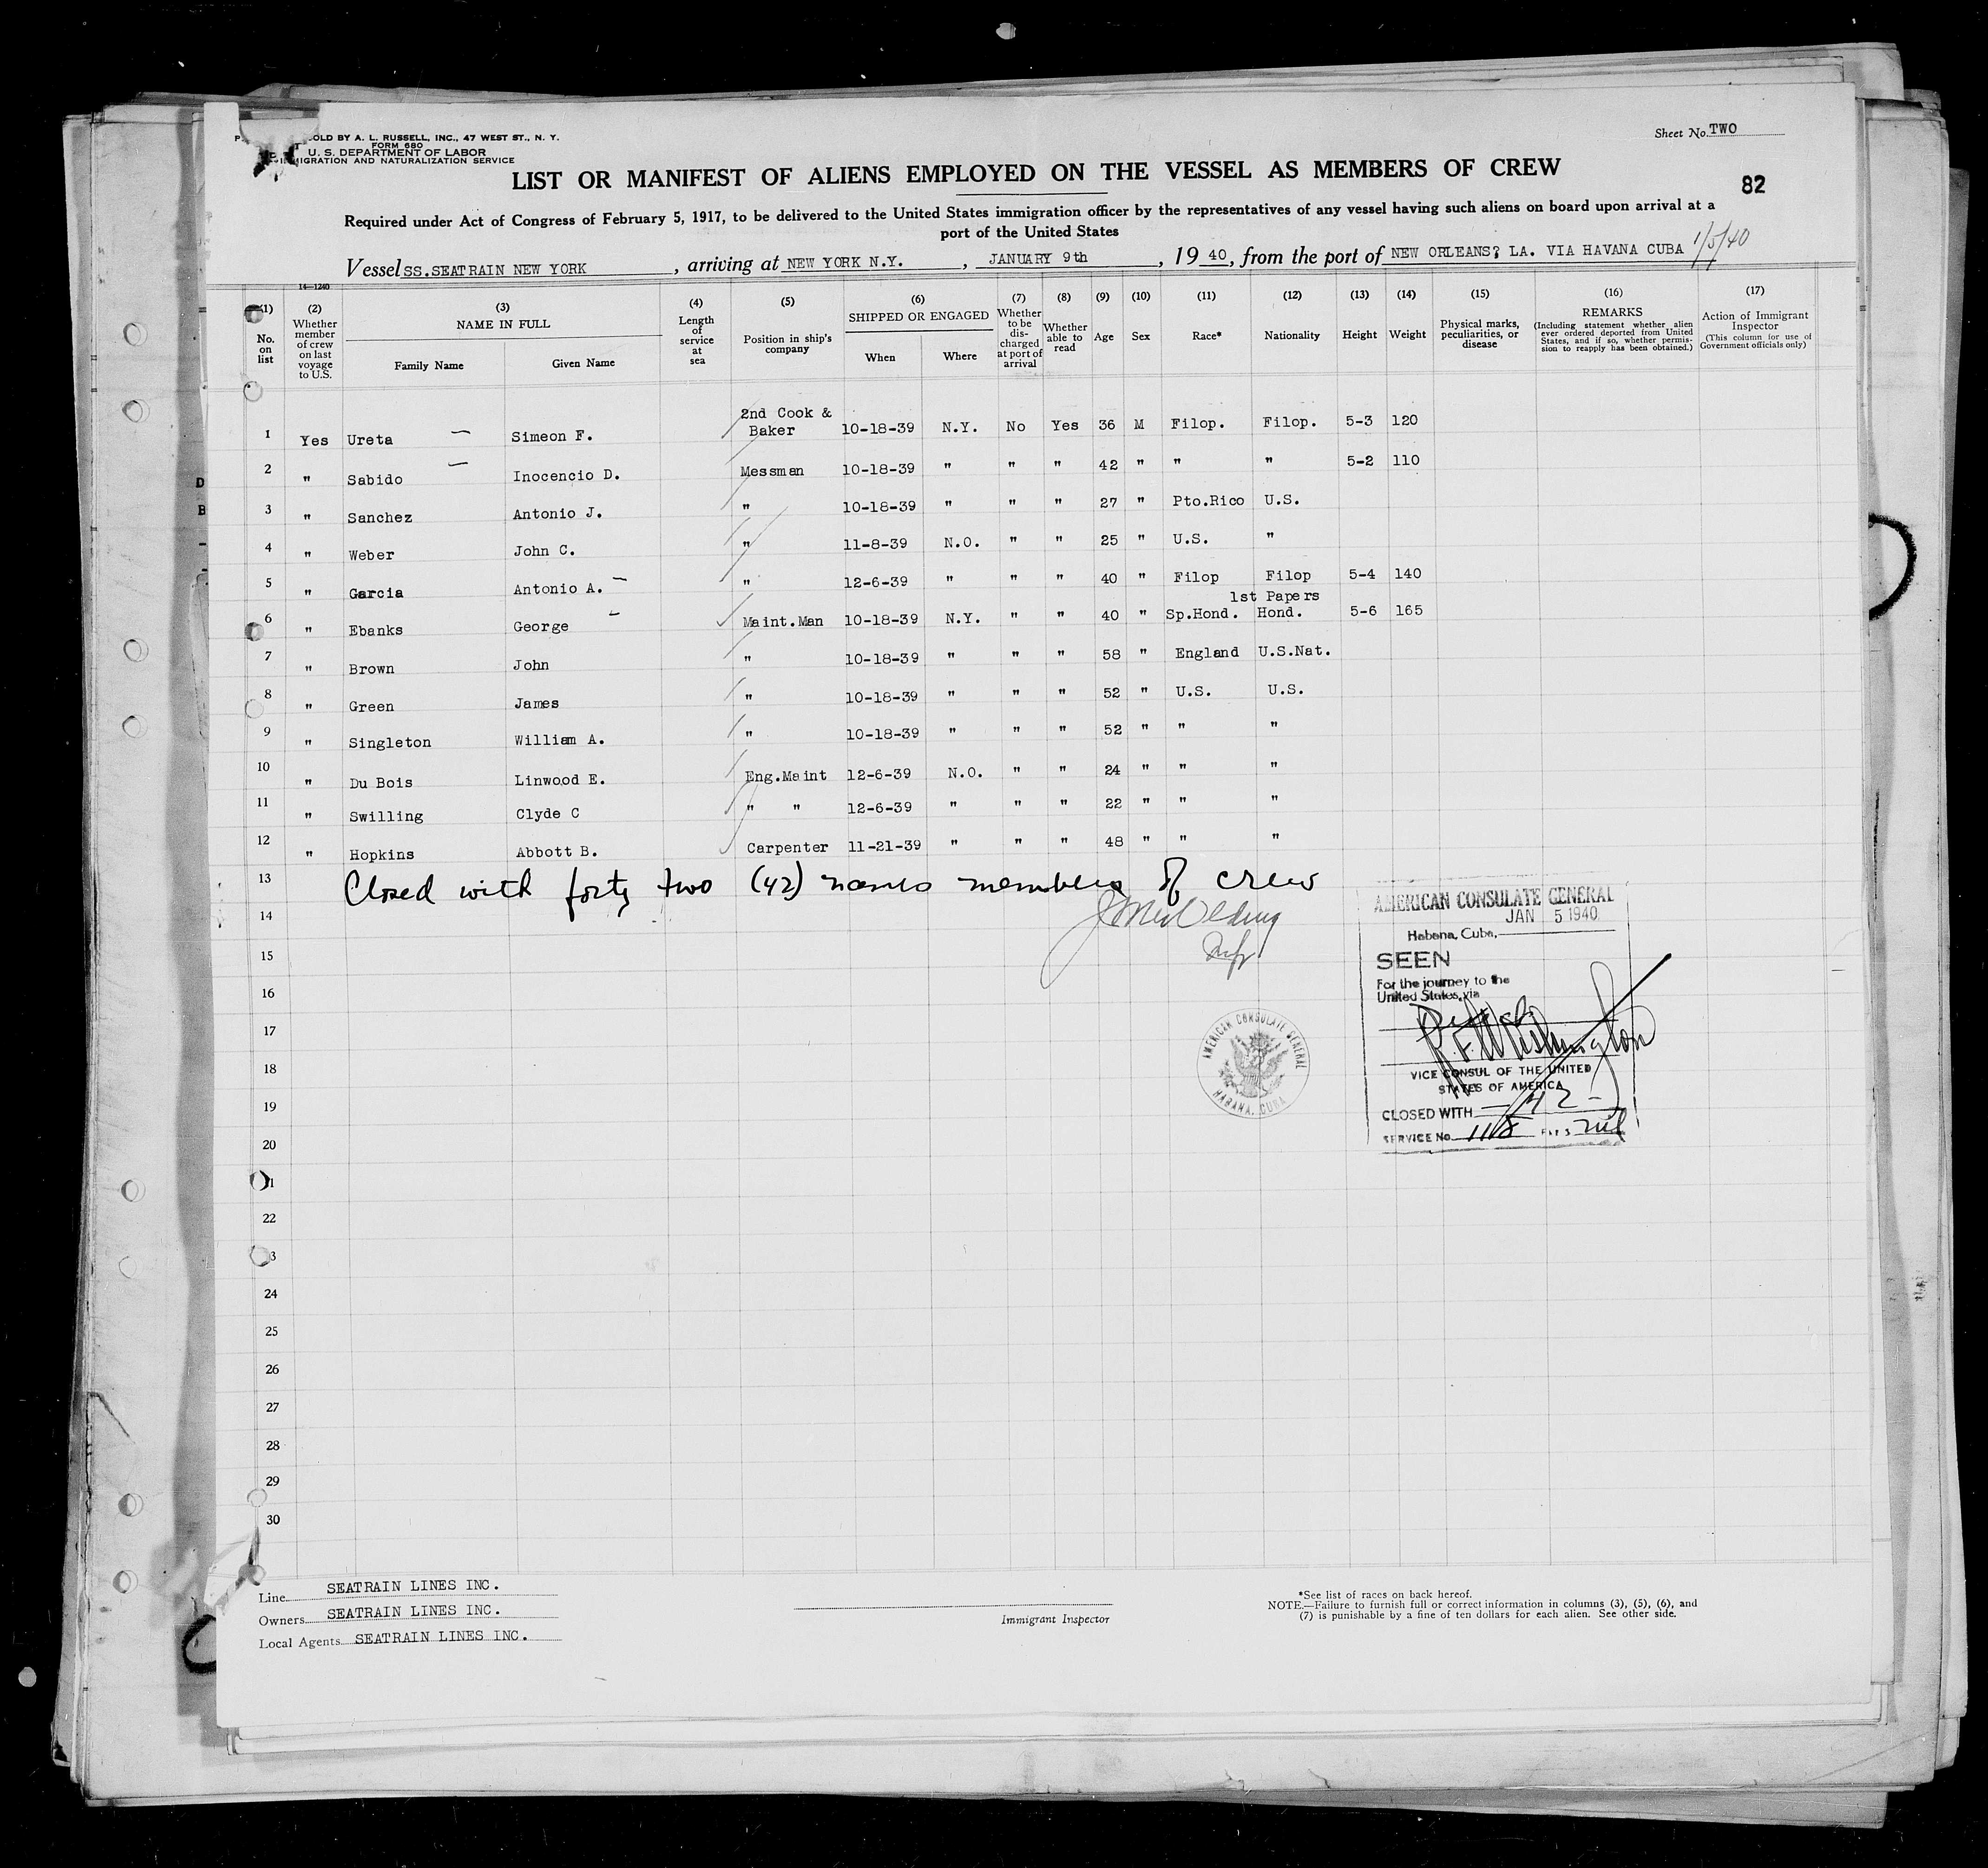 OLD BY A. L. RUSSELL, INC., 47 WEST ST., N. Y.
FORM 680
U. S. DEPARTMENT OF LABOR
MIGRATION AND NATURALIZATION SERVICE
Sheet No. TWO
LIST OR MANIFEST OF ALIENS EMPLOYED ON THE VESSEL AS MEMBERS OF CREW
82
Required under Act of Congress of February 5, 1917, to be delivered to the United States immigration officer by the representatives of any vessel having such aliens on board upon arrival at a
port of the United States
Vessel SS.SEATRAIN NEW YORK, arriving at NEW YORK N.Y., JANUARY 9th, 19 40, from the port of NEW ORLEANS? LA. VIA HAVANA CUBA 1/5/40
14—1240
(1) No. on list (2) Whether member of crew on last voyage to U.S. (3) NAME IN FULL Family Name Given Name (4) Length of service at sea (5) Position in ship's company (6) SHIPPED OR ENGAGED When Where (7) Whether to be discharged at port of arrival (8) Whether able to read (9) Age (10) Sex (11) Race* (12) Nationality (13) Height (14) Weight (15) Physical marks, peculiarities, or disease (16) REMARKS (Including statement whether alien ever ordered deported from United States, and if so, whether permission to reapply has been obtained.) (17) Action of Immigrant Inspector (This column for use of Government officials only)
1 Yes Ureta Simeon F. 2nd Cook & Baker 10-18-39 N.Y. No Yes 36 M Filop. Filop. 5-3 120
2 " Sabido Inocencio D. Messman 10-18-39 " " " 42 " " " 5-2 110
3 " Sanchez Antonio J. " 10-18-39 " " " 27 " Pto.Rico U.S.
4 " Weber John C. " 11-8-39 N.O. " " 25 " U.S. "
5 " Garcia Antonio A. " 12-6-39 " " " 40 " Filop Filop 5-4 140
1st Papers
6 " Ebanks George Maint.Man 10-18-39 N.Y. " " 40 " Sp.Hond. Hond. 5-6 165
7 " Brown John " 10-18-39 " " " 58 " England U.S.Nat.
8 " Green James " 10-18-39 " " " 52 " U.S. U.S.
9 " Singleton William A. " 10-18-39 " " " 52 " " "
10 " Du Bois Linwood E. Eng.Maint 12-6-39 N.O. " " 24 " " "
11 " Swilling Clyde C " " 12-6-39 " " " 22 " " "
12 " Hopkins Abbott B. Carpenter 11-21-39 " " " 48 " " "
13 Closed with forty two (42) names members of crew
14
15
16
17
18
19
20
1
22
3
24
25
26
27
28
29
30
AMERICAN CONSULATE GENERAL
JAN 5 1940
Habana, Cuba,
SEEN
For the journey to the
United States, via
VICE CONSUL OF THE UNITED
STATES OF AMERICA
CLOSED WITH —42—
SERVICE No. 1118 nil
AMERICAN CONSULATE GENERAL
HABANA, CUBA
Line SEATRAIN LINES INC.
Owners SEATRAIN LINES INC.
Local Agents SEATRAIN LINES INC.
Immigrant Inspector
*See list of races on back hereof.
NOTE.—Failure to furnish full or correct information in columns (3), (5), (6), and
(7) is punishable by a fine of ten dollars for each alien. See other side.